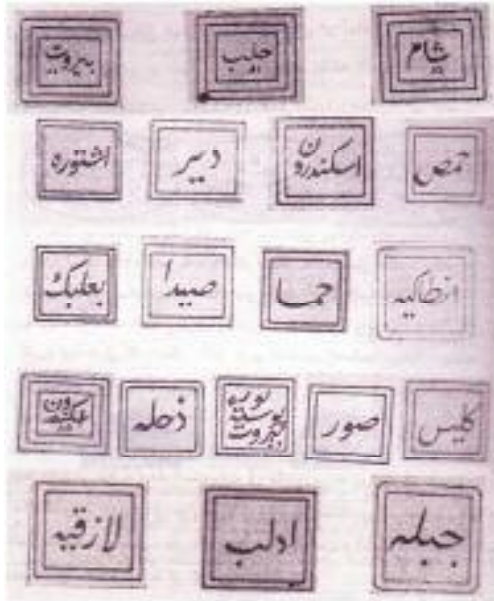 شام حلب بيروت
حمص اسكندرون دير اشتوره
انطاكيه حما صيدا بعلبك
كليس صور بيروت ذحله
جبله ادلب لازقيه